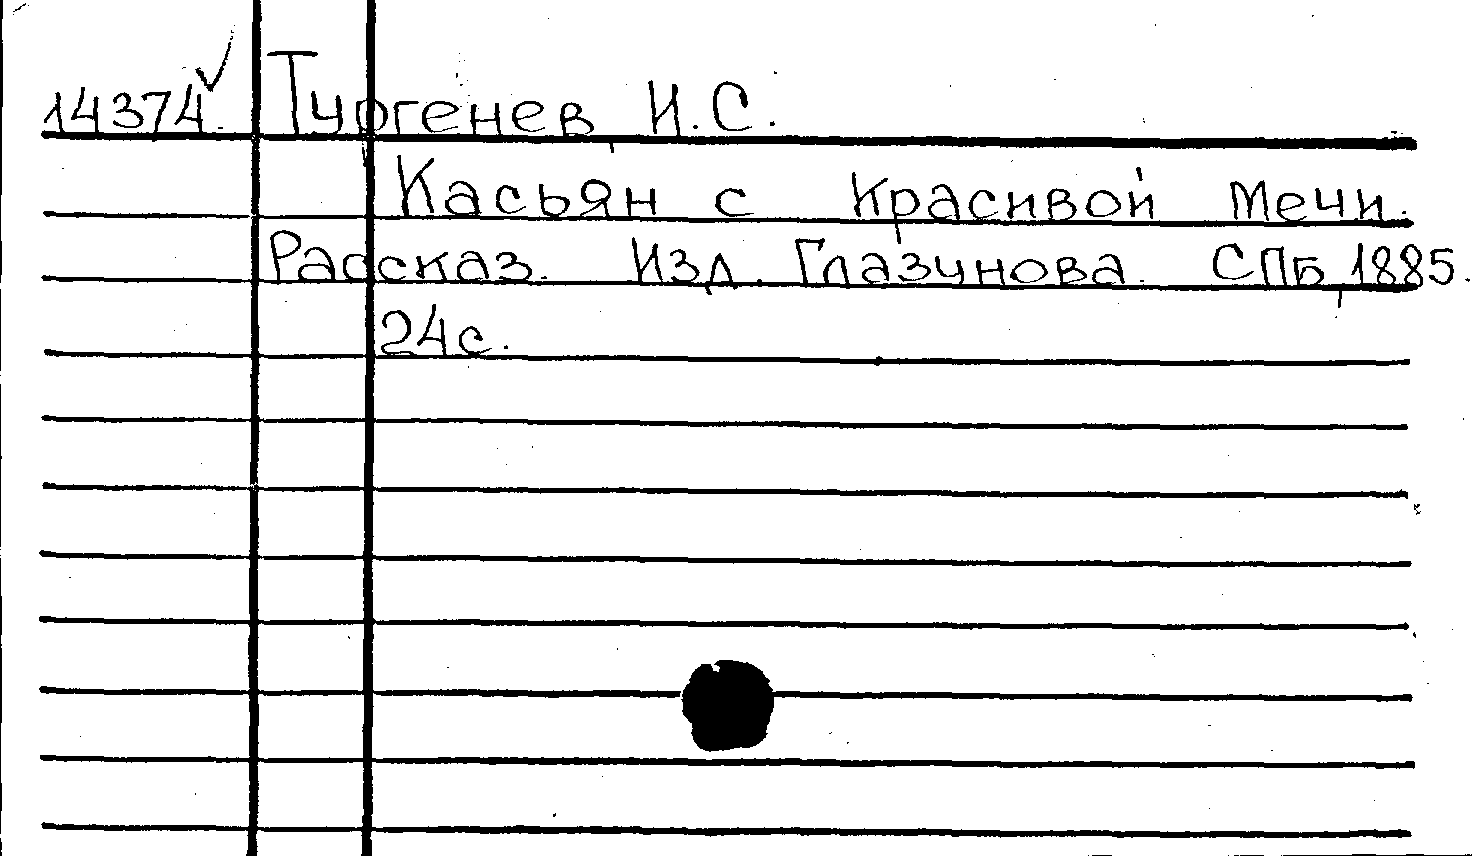 14374. Тургенев И.С.
Касьян с Красивой Мечи.
Рассказ. Изд. Глазунова. СПБ, 1885.
24с.